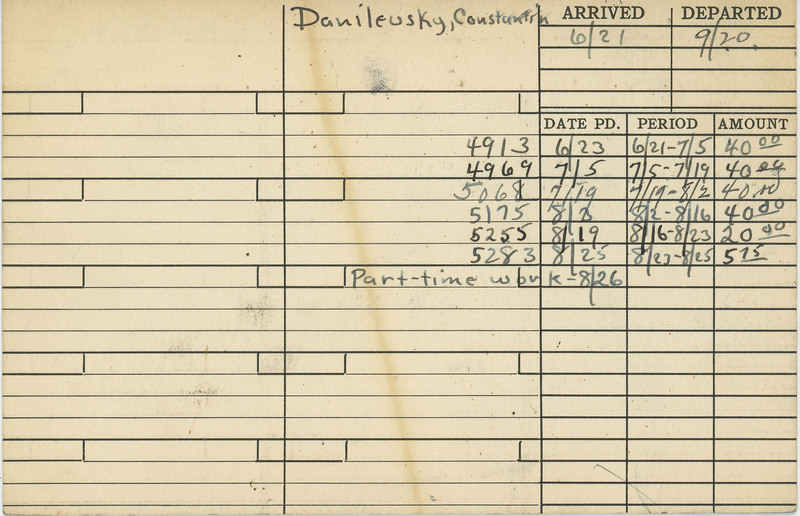 Danilevsky, Constantin ARRIVED DEPARTED
6/21 9/20.
DATE PD. PERIOD AMOUNT
4913 6/23 6/21-7/5 40 00
4969 7/5 7/5-7/19 40 00
5068 7/19 7/19-8/2 40.00
5175 8/8 8/2-8/16 40 00
5255 8/19 8/16-8/23 20 00
5283 8/25 8/23-8/25 5 75
Part-time work-8/26